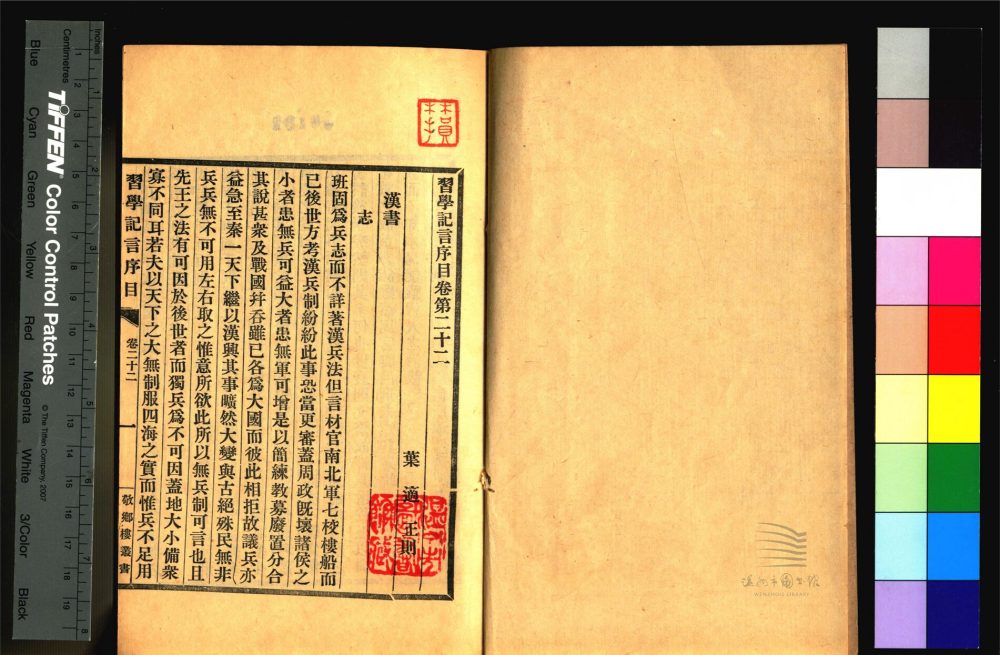 習學記言序目卷第二十二
葉適 正則
漢書
志
班固爲兵志而不詳著漢兵法但言材官南北軍七校樓船而
已後世方考漢兵制紛紛此事恐當更審蓋周政旣壞諸侯之
小者患無兵可益大者患無軍可增是以簡練教募廢置分合
其說甚衆及戰國幷吞雖已各爲大國而彼此相拒故議兵亦
益急至秦一天下繼以漢興其事曠然大變與古絕殊民無非
兵兵無不可用左右取之惟意所欲此所以無兵制可言也且
先王之法有可因於後世者而獨兵爲不可因蓋地大小備衆
寡不同耳若夫以天下之大無制服四海之實而惟兵不足用
習學記言序目
卷二十二
一
敬鄉樓叢書
WENZHOU LIBRARY
Inches
1 2 3 4 5 6 7 8
Centimetres
1 2 3 4 5 6 7 8 9 10 11 12 13 14 15 16 17 18 19
TIFFEN® Color Control Patches
© The Tiffen Company, 2007
Blue Cyan Green Yellow Red Magenta White 3/Color Black